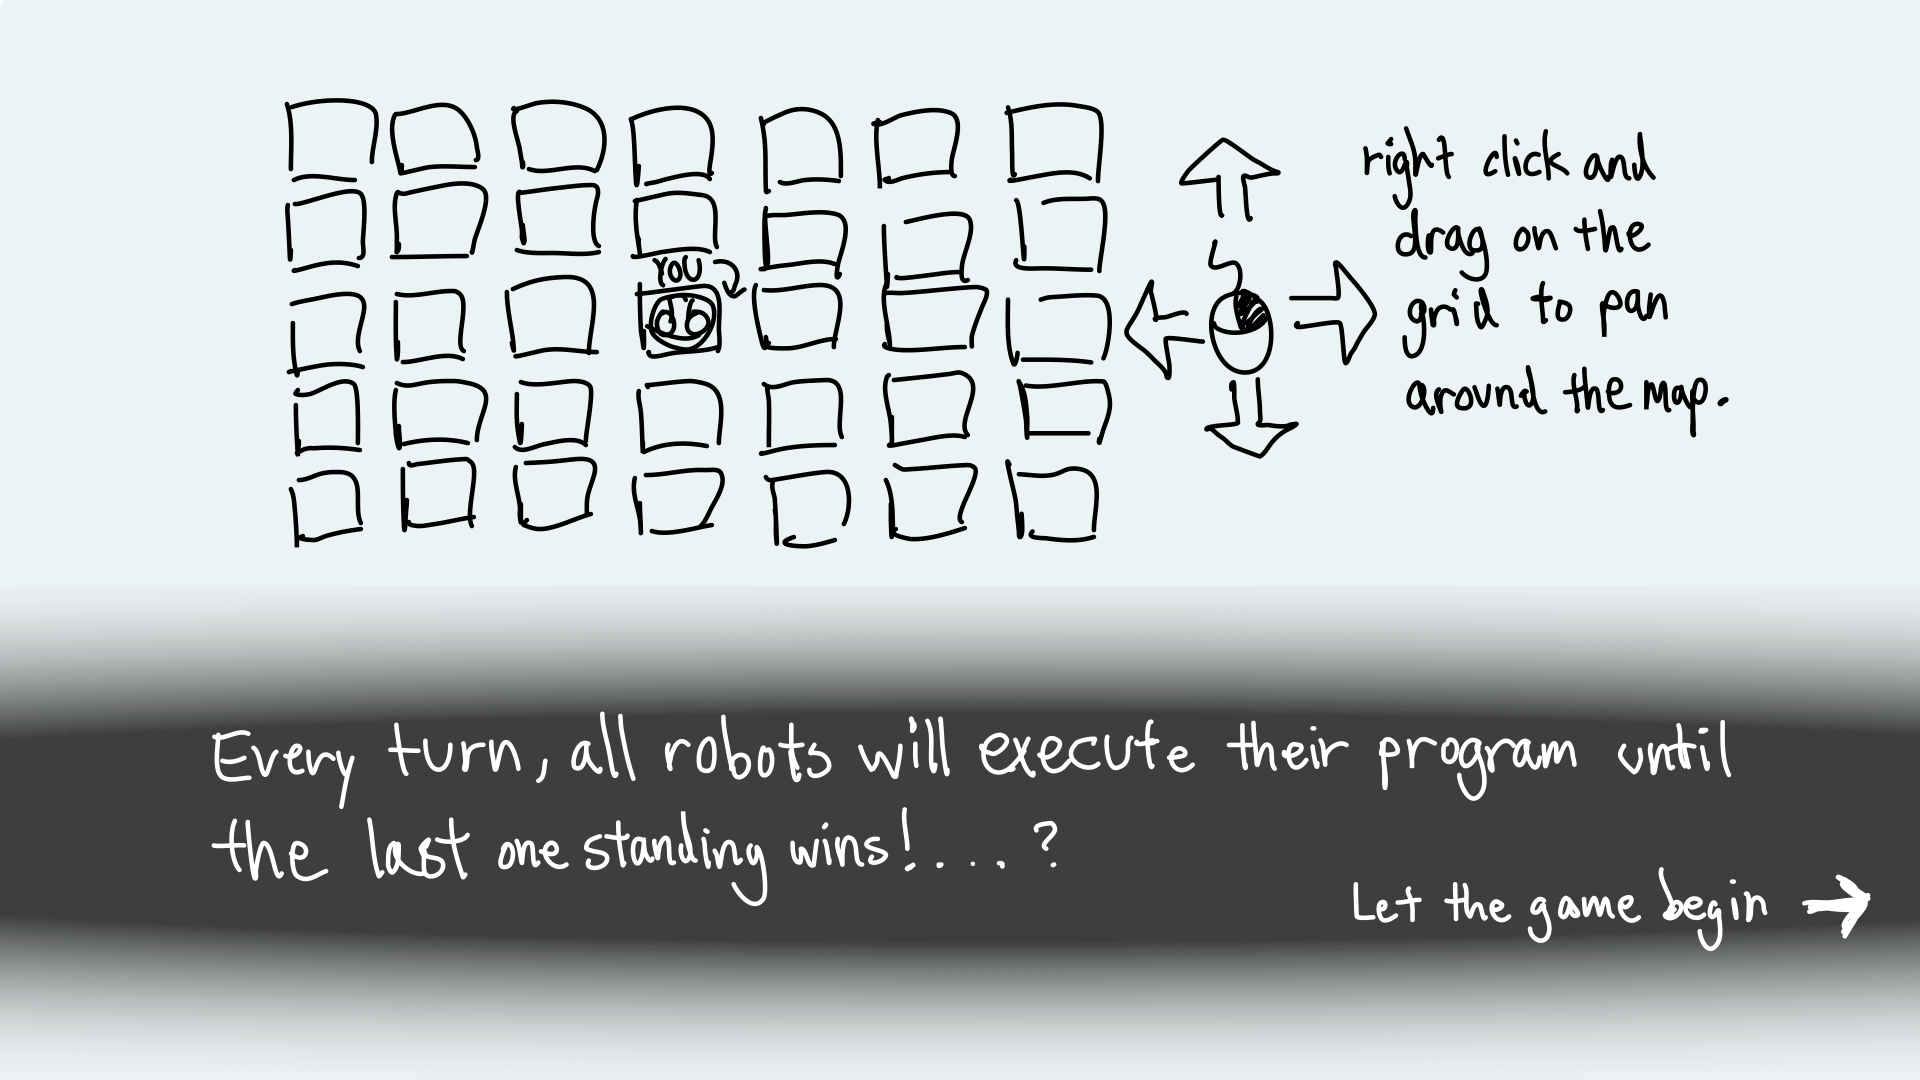 YOU
right click and
drag on the
grid to pan
around the map.
Every turn, all robots will execute their program until
the last one standing wins!...?
Let the game begin